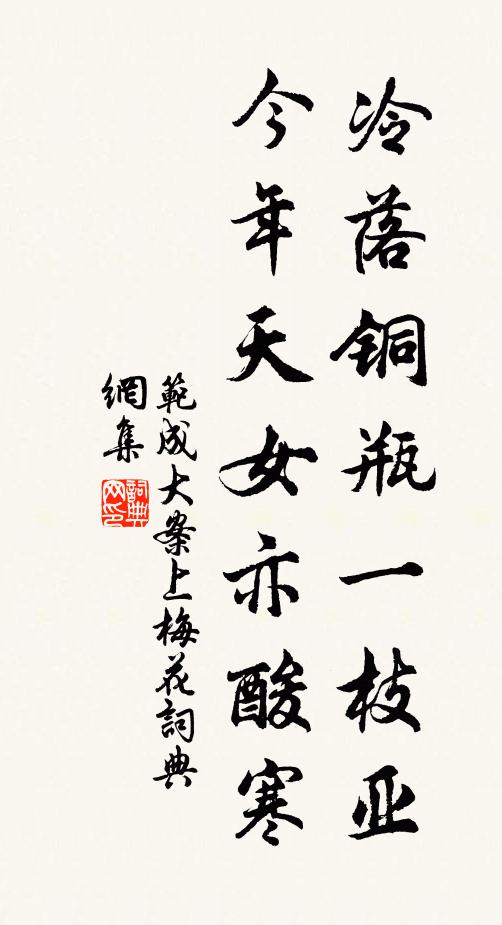 冷落铜瓶一枝亚
今年天女亦酸寒
範成大案上梅花詞典
網集
詞典
网印